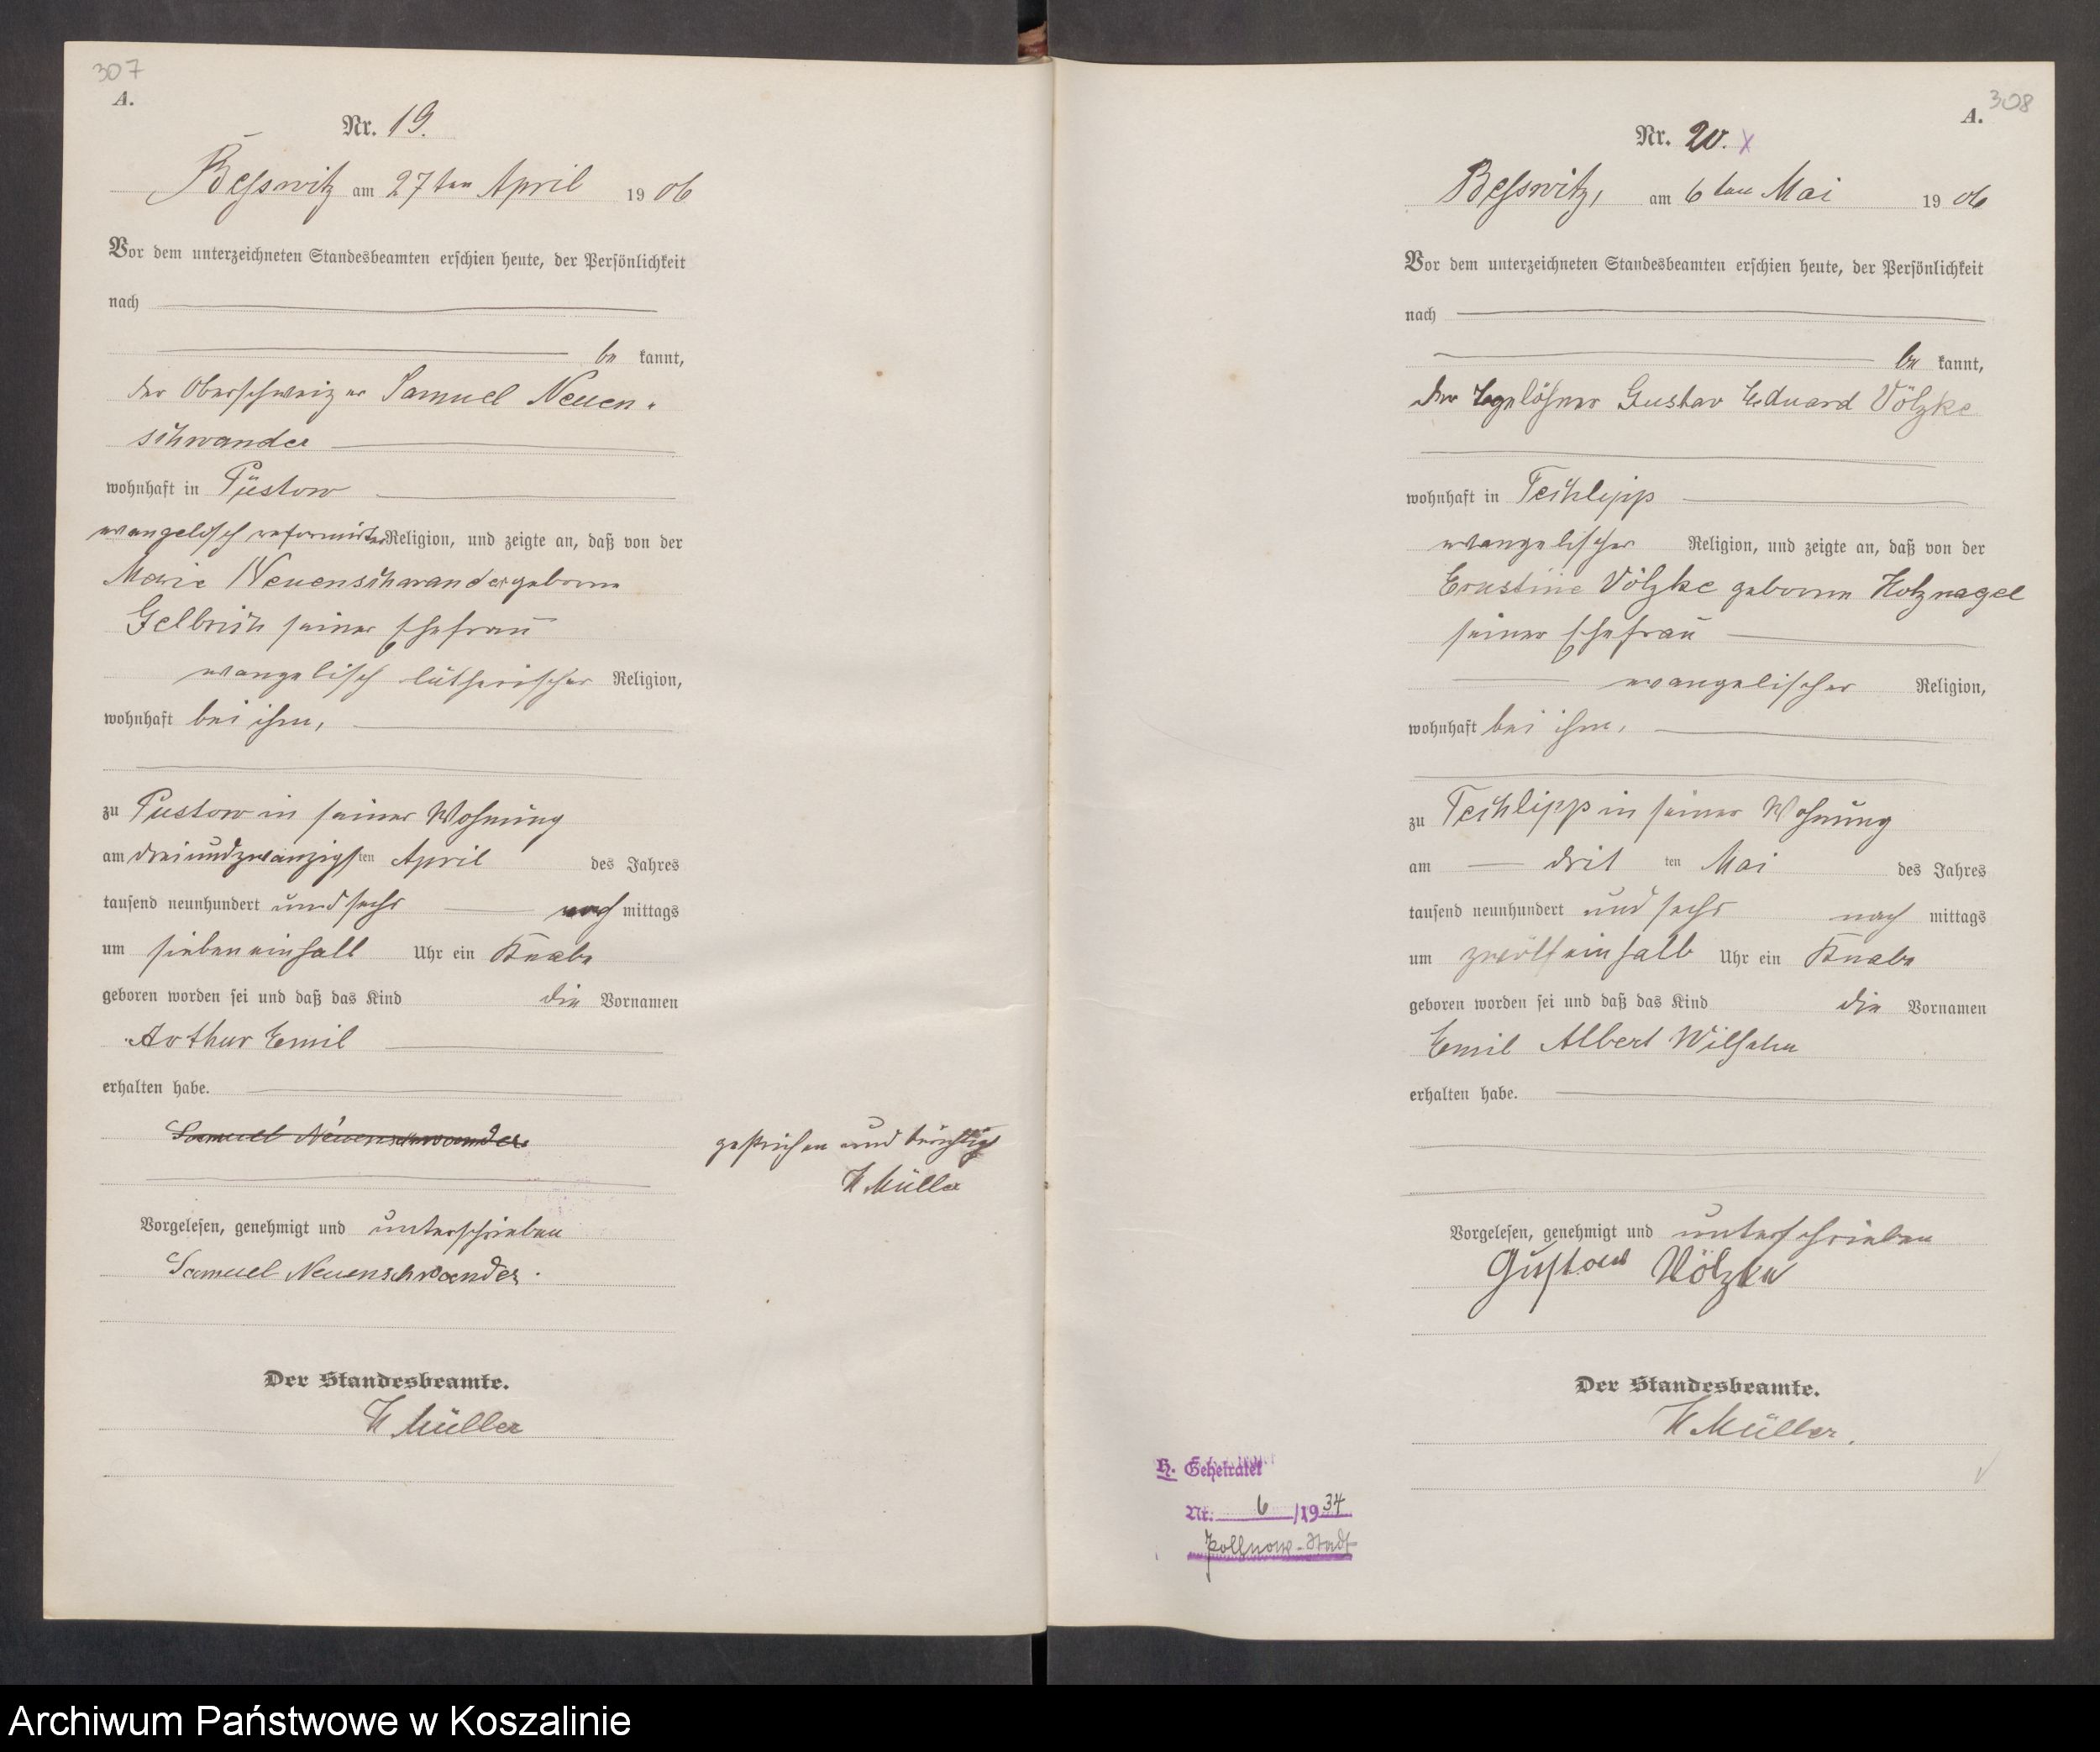 307
A.
Nr. 19.
Besswitz am 27ten April 1906
Vor dem unterzeichneten Standesbeamten erschien heute, der Persönlichkeit
nach
be kannt,
der Oberschweizer Samuel Neuen-
schwander
wohnhaft in Püstow
evangelisch reformirter Religion, und zeigte an, daß von der
Marie Neuenschwander geborene
Gelbrich seiner Ehefrau
evangelisch lutherischer Religion,
wohnhaft bei ihm,
zu Pustow in seiner Wohnung
am dreiundzwanzigsten April des Jahres
tausend neunhundert und sechs nach mittags
um sieben einhalb Uhr ein Knabe
geboren worden sei und daß das Kind die Vornamen
Arthur Emil
erhalten habe.
Samuel Neuenschwander
gestrichen und
H Müller
Vorgelesen, genehmigt und unterschrieben
Samuel Neuenschwander.
Der Standesbeamte.
H Müller
308
A.
Nr. 20. x
Besswitz, am 6ten Mai 1906
Vor dem unterzeichneten Standesbeamten erschien heute, der Persönlichkeit
nach
be kannt,
der Tagelöhner Gustav Eduard Völzke
wohnhaft in Techlipp
evangelischer Religion, und zeigte an, daß von der
Ernstine Völzke geborene Holznagel
seiner Ehefrau
evangelischer Religion,
wohnhaft bei ihm,
zu Techlipp in seiner Wohnung
am drit ten Mai des Jahres
tausend neunhundert und sechs nach mittags
um zwölf einhalb Uhr ein Knabe
geboren worden sei und daß das Kind die Vornamen
Emil Albert Wilhelm
erhalten habe.
Vorgelesen, genehmigt und unterschrieben
Gustav Völzke
Der Standesbeamte.
H Müller.
H. Geheiratet
Nr. 6 /1934
Pollnow-Stadt
Archiwum Państwowe w Koszalinie